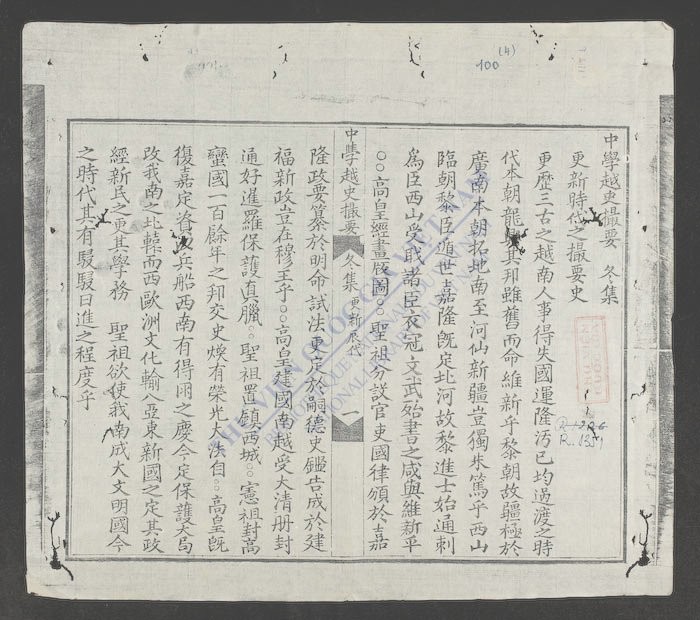 中學越史撮要 冬集
更新時代之撮要史
更歷三古之越南人事得失國運隆汚已均過渡之時
代本朝龍興其邦雖舊而命維新乎黎朝故疆極於
廣南本朝拓地南至河仙新疆豈獨朱篤乎西山
臨朝黎臣遁世嘉隆旣定北河故黎進士始通刺
爲臣西山受戕諸臣衣冠文武殆書之咸與維新乎
○○高皇經畫版圖○○聖祖分設官吏國律頒於嘉
中學越史撮要 冬集 更新展代 一
隆政要纂於明命試法更定於嗣德史鑑告成於建
福新政豈在穆王乎○○高皇建國南越受大清册封
通好暹羅保護真臘○○聖祖置鎮西城○○憲祖封高
蠻國一百餘年之邦交史燦有榮光大法自○○高皇旣
復嘉定資兵船西南有得朋之慶今定保護大局
改我南之北轅而西歐洲文化輸入亞東新國之定其政
經新民之更其學務 聖祖欲使我南成大文明國今
之時代其有駸駸日進之程度乎
(4)
100
R. 1351
THƯ VIỆN QUỐC GIA VIỆT NAM